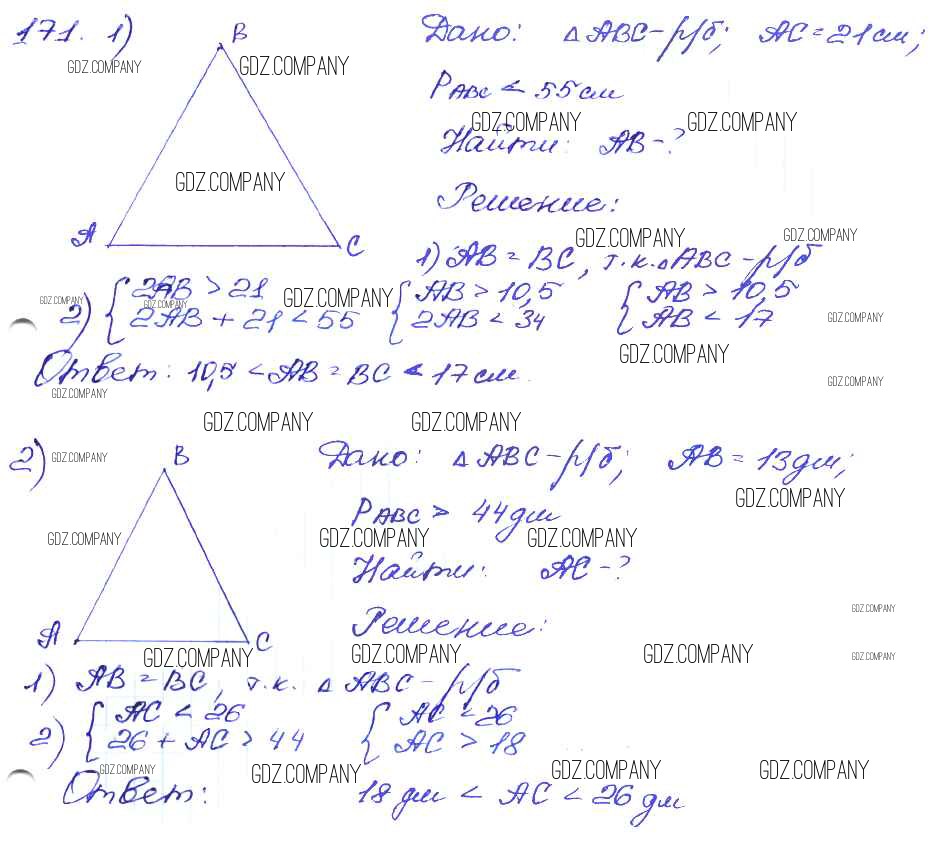 171. 1) B Дано: △ABC - р/б; AC = 21 см;
GDZ.COMPANY GDZ.COMPANY
P ABC < 55 см
GDZ.COMPANY GDZ.COMPANY
Найти: AB - ?
GDZ.COMPANY
Решение:
A C
GDZ.COMPANY GDZ.COMPANY
1) AB = BC, т.к. △ABC - р/б
GDZ.COMPANY GDZ.COMPANY GDZ.COMPANY
2) { 2AB > 21 { AB > 10,5 { AB > 10,5
2AB + 21 < 55 2AB < 34 AB < 17
GDZ.COMPANY
GDZ.COMPANY
Ответ: 10,5 < AB = BC < 17 см.
GDZ.COMPANY GDZ.COMPANY
GDZ.COMPANY GDZ.COMPANY
2) B Дано: △ABC - р/б; AB = 13 дм;
GDZ.COMPANY
GDZ.COMPANY
P ABC > 44 дм
GDZ.COMPANY GDZ.COMPANY GDZ.COMPANY
Найти: AC - ?
GDZ.COMPANY
Решение:
A C
GDZ.COMPANY GDZ.COMPANY GDZ.COMPANY GDZ.COMPANY
1) AB = BC, т.к. △ABC - р/б
2) { AC < 26 { AC < 26
26 + AC > 44 AC > 18
GDZ.COMPANY GDZ.COMPANY GDZ.COMPANY GDZ.COMPANY
Ответ: 18 дм < AC < 26 дм